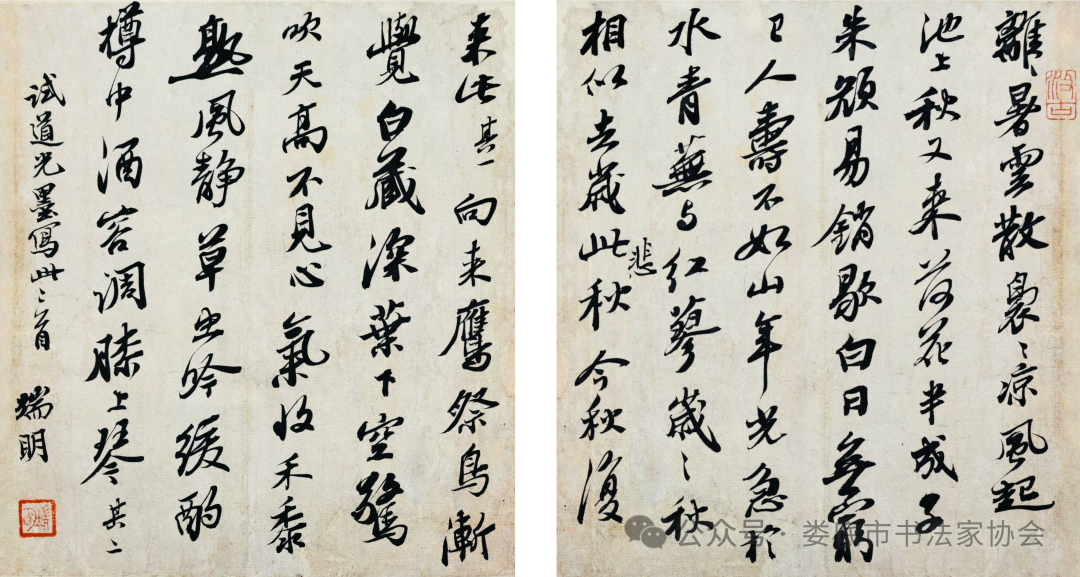 離〻暑雲散裊〻凉風起
池上秋又来荷花半成子
朱顔易銷歇白日無窮
已人壽不如山年光急於
水青蕪与紅蓼歲〻秋
相似去歲此秋悲今秋復
来此其一向来鷹祭鳥漸
覺白藏深葉下空驚
吹天高不見心氣收禾黍
熟風静草虫吟緩酌
樽中酒容調膝上琴其二
试道光墨寫此二首 瑞明
汲古
公众号·娄底市书法家协会